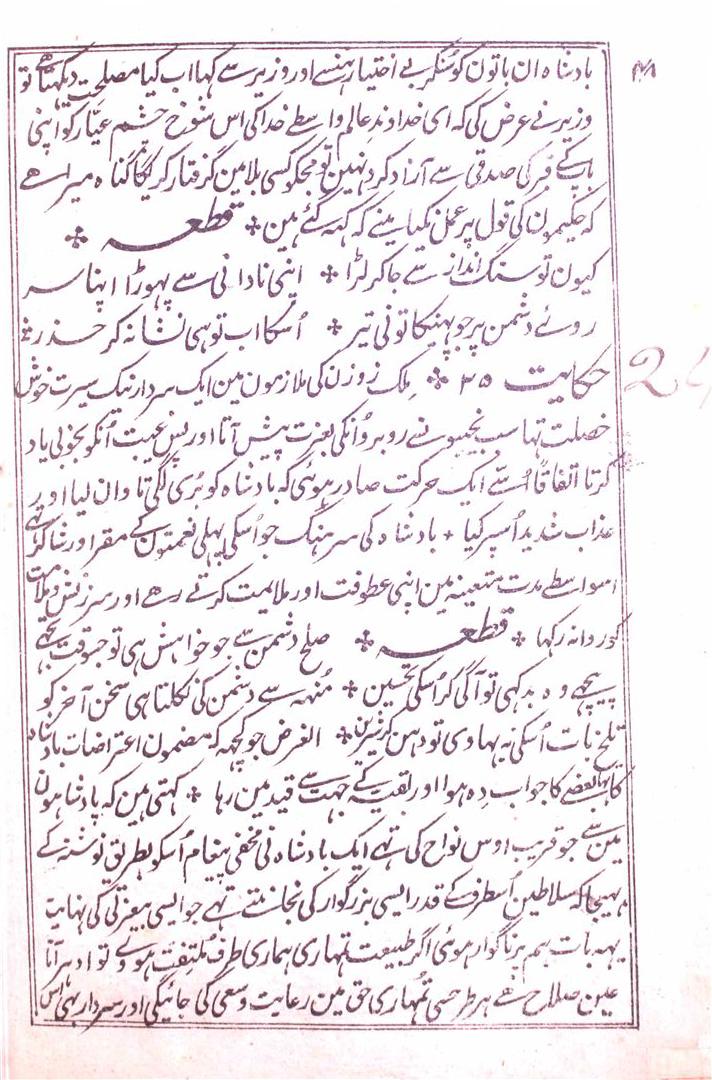 ۴۸
بادشاہ ان باتون کو سُنکر بے اختیار ہنسے اور وزیر سے کہا اب کیا مصلحت دیکھتا ہے تو
وزیر نے عرض کی کہ ای خداوندِ عالم واسطے خدا کی اس شوخ چشم عیّار کو اپنی
باپ کے قبر کی صدقی سے آزاد کر دے نہین تو مجکو کسی بلا مین گرفتار کریگا گناہ میرا ہے
کہ حکیمون کی قول پر عمل نکیا مینے کہ کہہ گئے ہین ✤ قطعہ ✤
کیون تو سنگ انداز سے جا کر لڑا ✤ اپنی نادانی سے پہوڑا اپنا سر
روئے دشمن پر جو پہینکا تو نی تیر ✤ اُسکا اب تو ہی نشانہ کر حذر ✤
حکایت ۲۵ ✤ ملک زوزن کی ملازمون مین ایک سردار نیک سیرت خوش
خصلت تہا سب نجیبو نسے روبرو اُنکی بعزت پیش آتا اور پس غیبت اُنکو بخوبی یاد
کرتا اتفاقًا اُسّے ایک حرکت صادر ہوئی کہ بادشاہ کو بُری لگی تاوان لیا اور
عذاب شدید اُسپر کیا + بادشاہ کی سرہنگ جو اُسکی پہلی نعمتون کے مقر اور شاکر تہے
اسواسطے مدت متعینہ مین اپنی عطوفت اور ملایمت کرتے رہے اور سرزنش و ملامت
کو روا نہ رکہا ✤ قطعہ ✤ صلح دشمن سے جو خواہش ہی تو جسوقت تجہے
پیچہے وہ بد کہی تو آگی کر اُسکی تحسین ✤ مُنہہ سے دشمن کی نکلتا ہی سخن آخر کو
تلخ بات اُسکی نہ بہاوی تو دہن کر شیرین ✤ الغرض جو کچہہ کہ مضمون اعتراضات بادشاہ
کا تہا بعضے کا جواب دہ ہوا اور بقیّہ کے جہت سے قید مین رہا ✤ کہتی ہین کہ پادشاہون
مین سے جو قریب اوس نواح کی تہے ایک بادشاہ نی مخفی پیغام اُسکو بطریق نوشتہ کے
بہیجا کہ سلاطین اُسطرف کے قدر ایسی بزرگوار کی نجانتے تہے جو ایسی بیعزتی کی نہایت
یہہ بات ہم پر ناگوار ہوئی اگر طبیعت تمہاری ہماری طرف ملتفت ہووے تو ادہر آنا
عین صلاح ہے ہر طرحسی تمہاری حق مین رعایت وسعی کی جائیگی اور سردار بہی اس